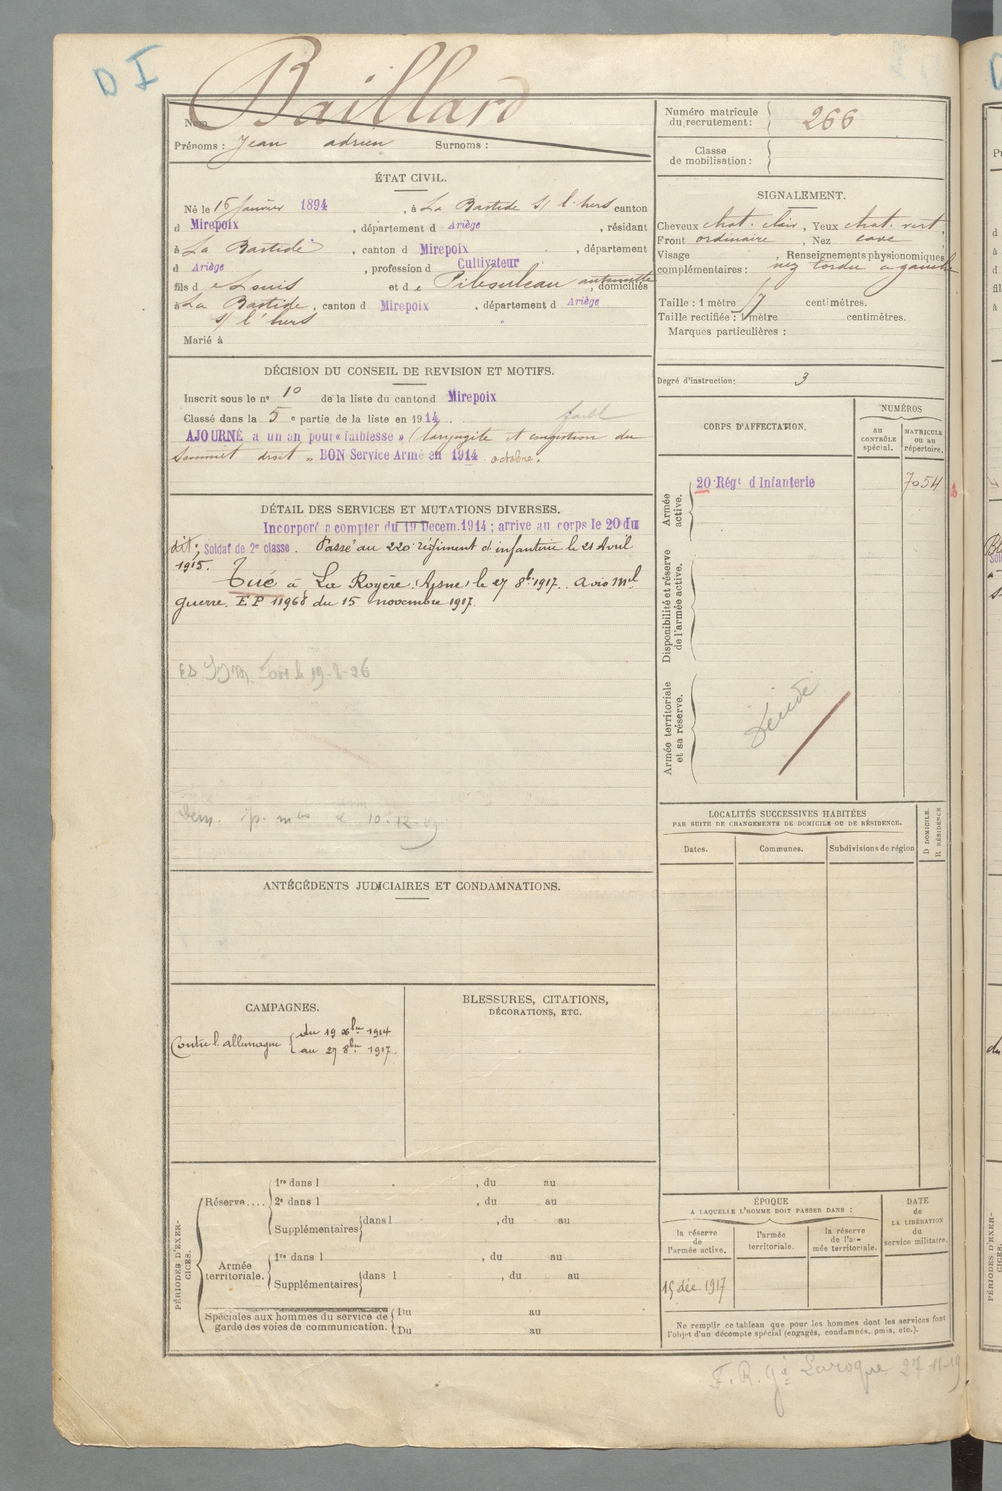 D I
Baillard
Nom
Prénoms : Jean adrien Surnoms :
Numéro matricule
du recrutement : 266
Classe
de mobilisation :
ÉTAT CIVIL.
Né le 15 Janvier 1894, à La Bastide s/ l'hers canton
d Mirepoix, département d Ariège, résidant
à La Bastide, canton d Mirepoix, département
d Ariège, profession d Cultivateur
fils d e Louis et d e antoinette, domiciliés
à La Bastide, canton d Mirepoix, département d Ariège
s/ l'hers
Marié à
SIGNALEMENT.
Cheveux chat. clair, Yeux chat. vert.
Front ordinaire, Nez cave
Visage , Renseignements physionomiques
complémentaires : nez tordu a gauche
Taille : 1 mètre 57 centimètres.
Taille rectifiée : 1 mètre centimètres.
Marques particulières :
Degré d'instruction : 3
DÉCISION DU CONSEIL DE REVISION ET MOTIFS.
Inscrit sous le n° 10 de la liste du canton d Mirepoix
Classé dans la 5 e partie de la liste en 1914.
AJOURNÉ a un an pour « faiblesse » (laryngite et congestion du
sommet droit » BON Service Armé en 1914 octobre.
DÉTAIL DES SERVICES ET MUTATIONS DIVERSES.
Incorporé a compter du 19 Decem. 1914 ; arrive au corps le 20 du
dit ; Soldat de 2e classe. Passé au 220 régiment d'infanterie le 21 Avril
1915.
Tué à La Royère (Aisne) le 27 8bre 1917. Avis Mel
guerre. EP 11968 du 15 novembre 1917.
CORPS D'AFFECTATION.
NUMÉROS
AU
CONTRÔLE
spécial.
MATRICULE
OU AU
répertoire.
Armée
active.
20 Régt d Infanterie 7054
Disponibilité et réserve
de l'armée active.
Armée territoriale
et sa réserve.
LOCALITÉS SUCCESSIVES HABITÉES
PAR SUITE DE CHANGEMENTS DE DOMICILE OU DE RÉSIDENCE.
Dates. Communes. Subdivisions de région
D DOMICILE.
R RÉSIDENCE
ANTÉCÉDENTS JUDICIAIRES ET CONDAMNATIONS.
CAMPAGNES.
Contre l'allemagne du 19 Xbre 1914
au 27 8bre 1917.
BLESSURES, CITATIONS,
DÉCORATIONS, ETC.
PÉRIODES D'EXERCICES.
Réserve....
1re dans l , du au
2e dans l , du au
Supplémentaires dans l , du au
Armée
territoriale.
1re dans l , du au
Supplémentaires dans l , du au
Spéciales aux hommes du service de
garde des voies de communication.
Du au
Du au
ÉPOQUE
A LAQUELLE L'HOMME DOIT PASSER DANS :
la réserve
de
l'armée active.
l'armée
territoriale.
la réserve
de l'ar-
mée territoriale.
DATE
de
LA LIBÉRATION
du
service militaire.
15 déc. 1917
Ne remplir ce tableau que pour les hommes dont les services font
l'objet d'un décompte spécial (engagés, condamnés, omis, etc.).
Laroque 27-11-19